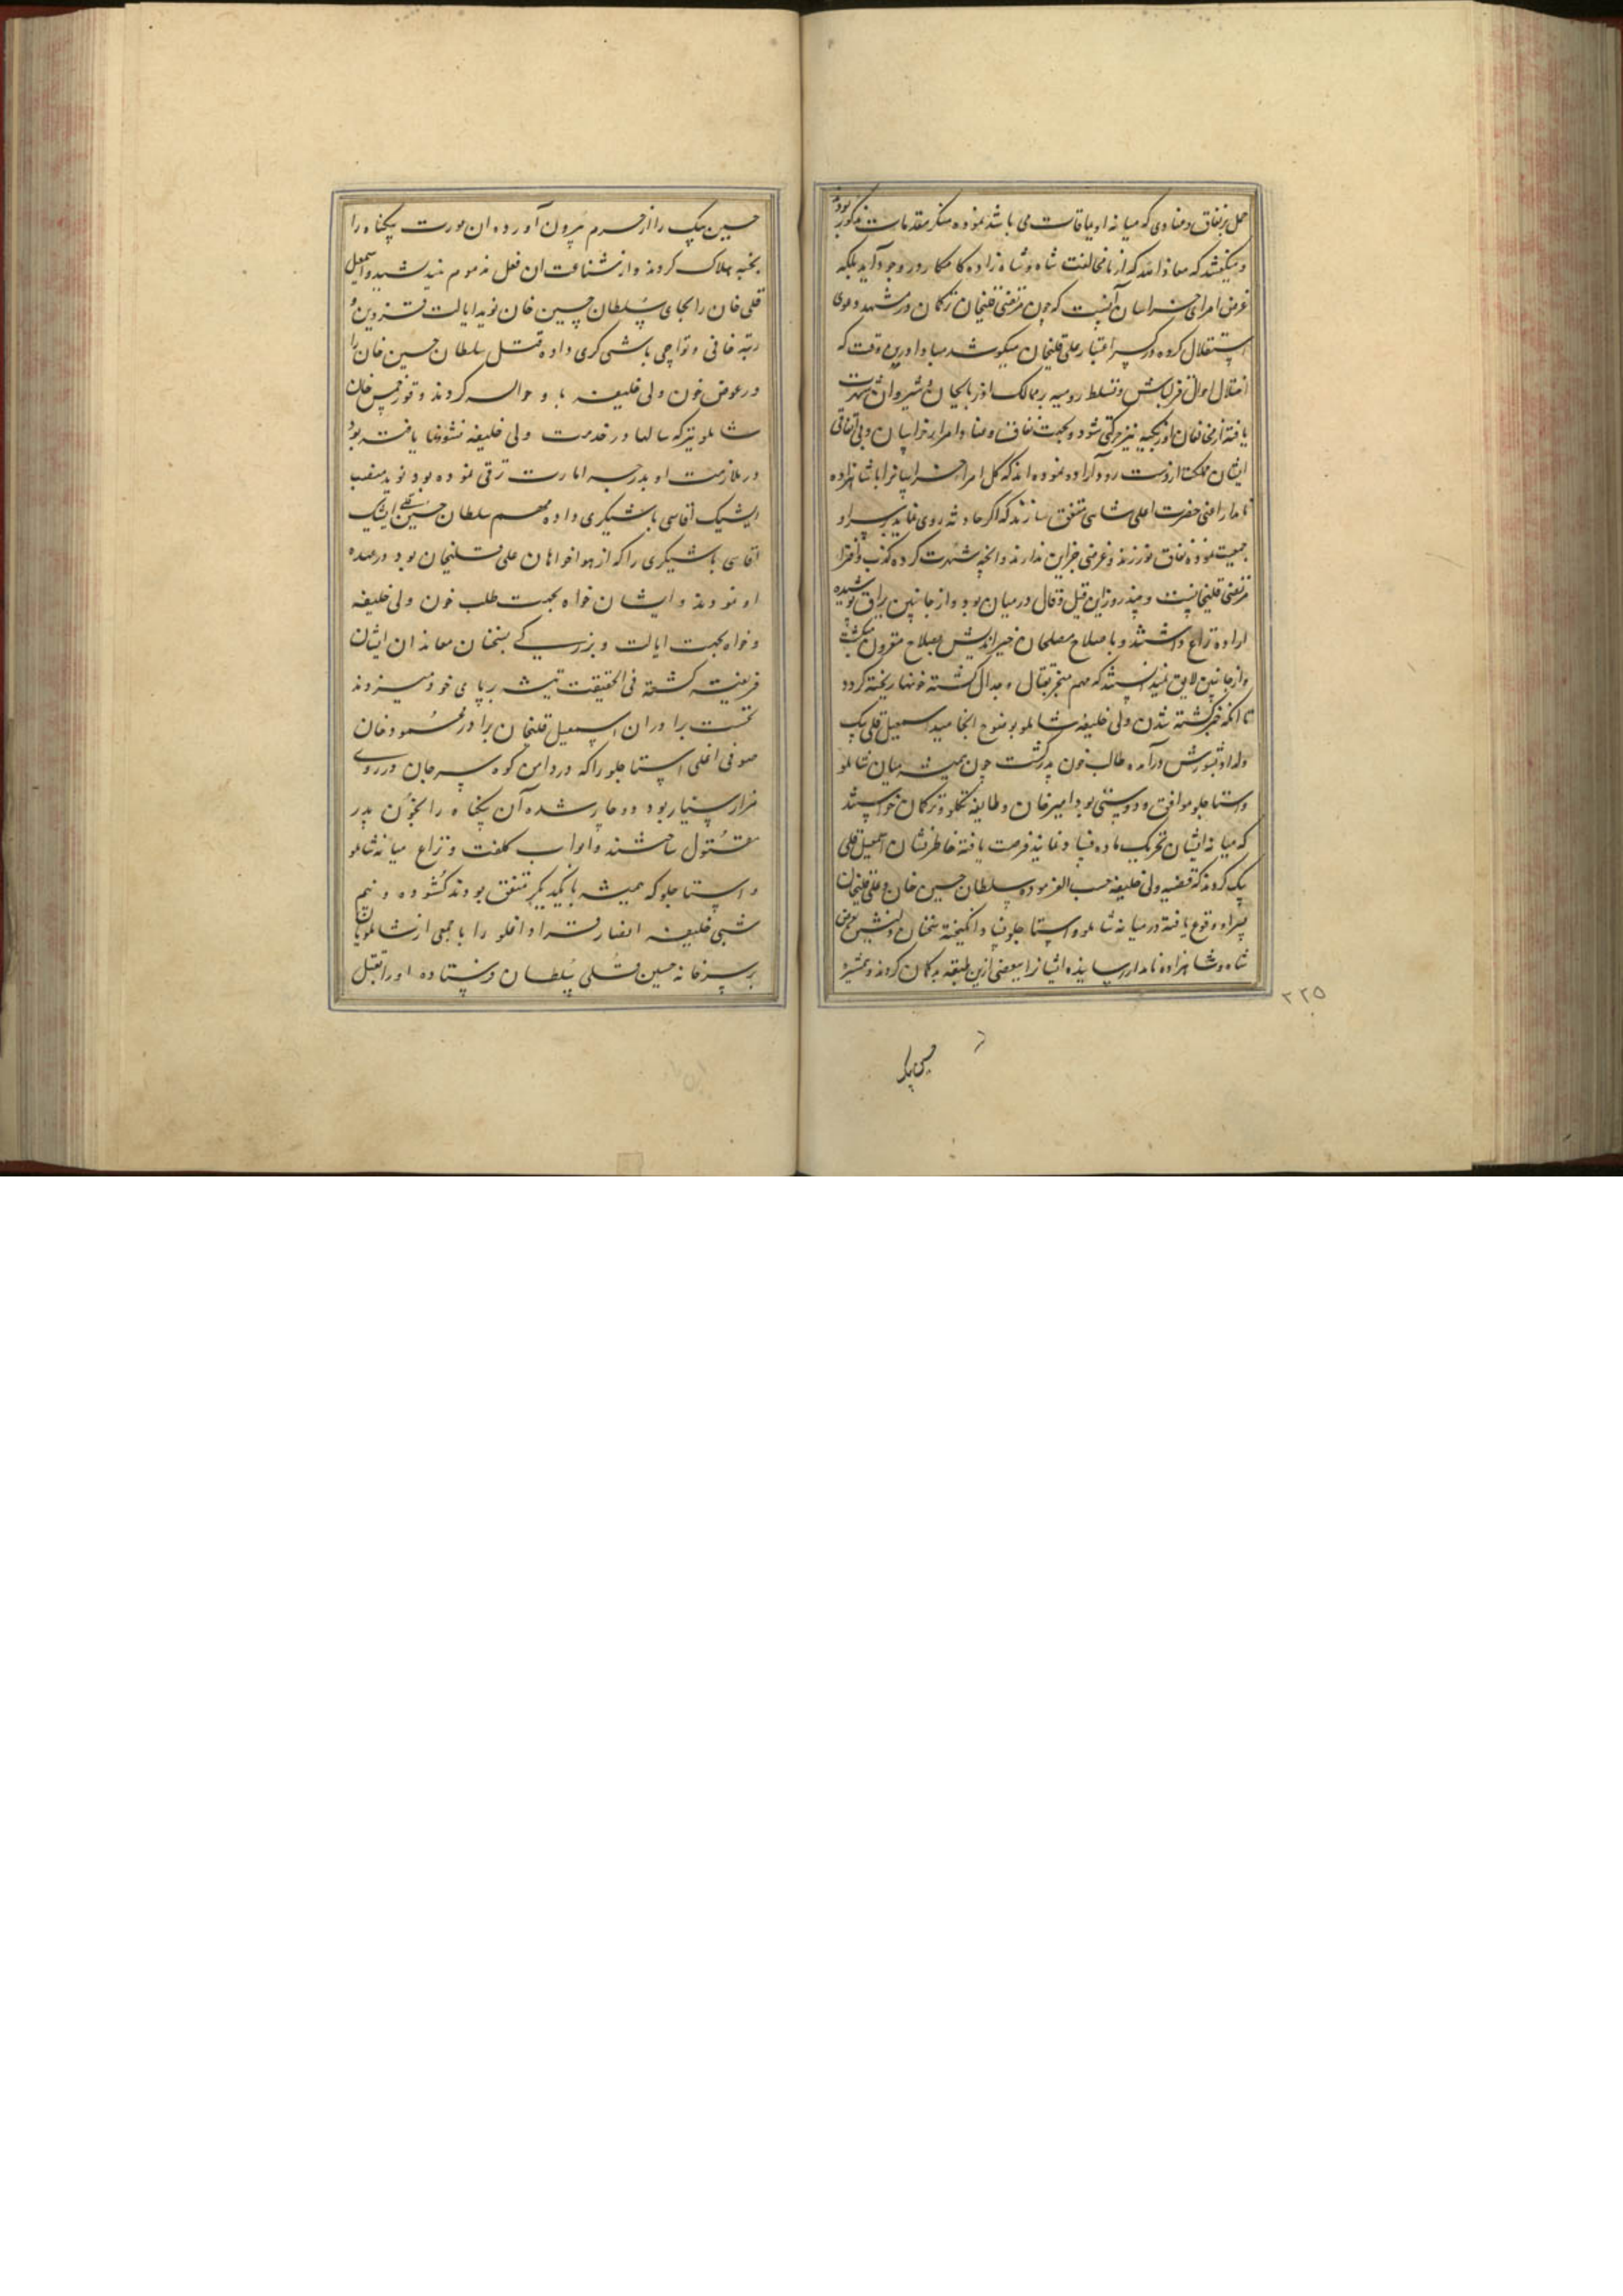 حمل بر نفاق و عنادی که میانه اویماقات می باشد نموده منکر مقدمات مذکور بودند
و میگفتند که معاذ الله که از ما مخالفت شاه و شاهزاده کامکار در وجود آید بلکه
غرض امرای خراسان آنست که چون مرتضی قلیخان ترکمان در مشهد دعوی
استقلال کرده در کسر اعتبار علی قلیخان میکوشد مبادا درین وقت که
اختلال احوال قزلباش و تسلط رومیه بر ممالک آذربایجان و شیروان شهرت
یافته از مخالفان اوزبکیه نیز حرکتی شود و بجهت نفاق و عناد امراء خراسان و بی اتفاقی
ایشان مملکت از دست رود اراده نموده اند که کل امراء خراسانرا با شاهزاده
نامدار اعنی حضرت اعلی شاهی متفق سازند که اگر حادثه روی نماید بر سر او
جمعیت نموده نفاق نورزند و غرضی جز این ندارند و آنچه شهرت کرده کذب و افترا
مرتضی قلیخانست و چند روز این قیل و قال در میان بود و از جانبین یراق پوشیده
اراده نزاع داشتند و باصلاح مصلحان خیراندیش بصلاح مقرون میگشت
و از جانبین لایق نمیدانستند که مهم منجر بقتال و جدال گشته خونها ریخته گردد
تا آنکه خبر کشته شدن ولی خلیفه شاملو بوضوح انجامید اسمعیل قلی بیک
ولد او بشورش درآمده طالب خون پدر گشت چون همیشه میان شاملو
و استاجلو موافقت و دوستی بود امیرخان و طایفه تکلو و ترکمان خواستند
که میانه ایشان تحریک ماده فساد نمایند فرصت یافته خاطرنشان اسمعیل قلی
بیک کردند که قضیه ولی خلیفه حسب الفرموده سلطان حسین خان و علی قلیخان
پسر او وقوع یافته در میانه شاملو و استاجلو فساد انگیخته سخنان دلنشین بعرض
شاه و شاهزاده نامدار رسانیده ایشانرا ببعضی ازین طبقه بدگمان کردند و همشیره
۲۲۵
حسین بیک
حسین بیک را از حرم بیرون آورده آن عورت بیگناه را
بخبه هلاک کردند و از شناعت آن فعل مذموم نیندیشیدند و اسمعیل
قلی خان را بجای سلطان حسین خان نوید ایالت قزوین و
رتبه خانی و تواچی باشی گری داده قتل سلطان حسین خان را
در عوض خون ولی خلیفه باو حواله کردند و قورخمس خان
شاملو نیز که سالها در خدمت ولی خلیفه نشوونما یافته بود
در ملازمت او بدرجه امارت ترقی نموده بود نوید منصب
ایشیک آقاسی باشیگری داده مهم سلطان حسین علی ایشیک
آقاسی باشیگری را که از هواخواهان علی قلیخان بود در عهده
او نمودند و ایشان خواه بجهت طلب خون ولی خلیفه
و خواه بجهت ایالت و بزرگی بسخنان معاندان ایشان
فریفته گشته فی الحقیقت تیشه بر پای خود میزدند
نخست برادران اسمعیل قلیخان برادر محمود خان
صوفی اغلی استاجلو را که در دامن کوه سرجان در روی
مزار بسیار بود دوچار شده آن بیگناه را بخون پدر
مقتول ساختند و ابواب کلفت و نزاع میانه شاملو
و استاجلو که همیشه با یکدیگر متفق بودند گشوده و نیم
شبی خلیفه انصار قراداغلو را با جمعی از شاملویان
بر سر خانه حسین قلی سلطان فرستاده او را بقتل